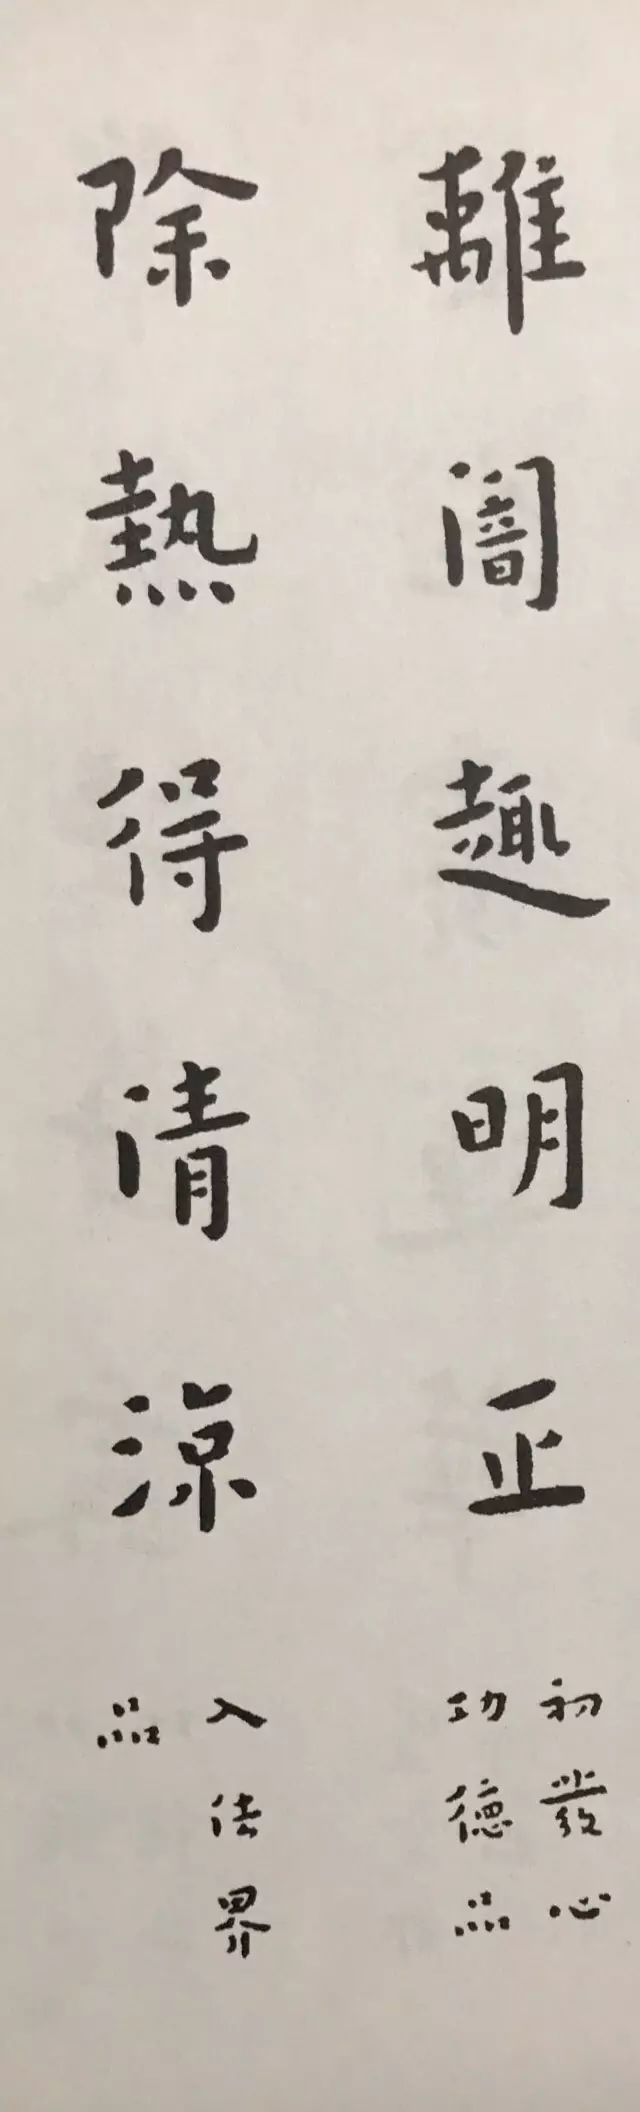 離闇趣明正
初發心
功德品
除熱得清涼
入法界
品